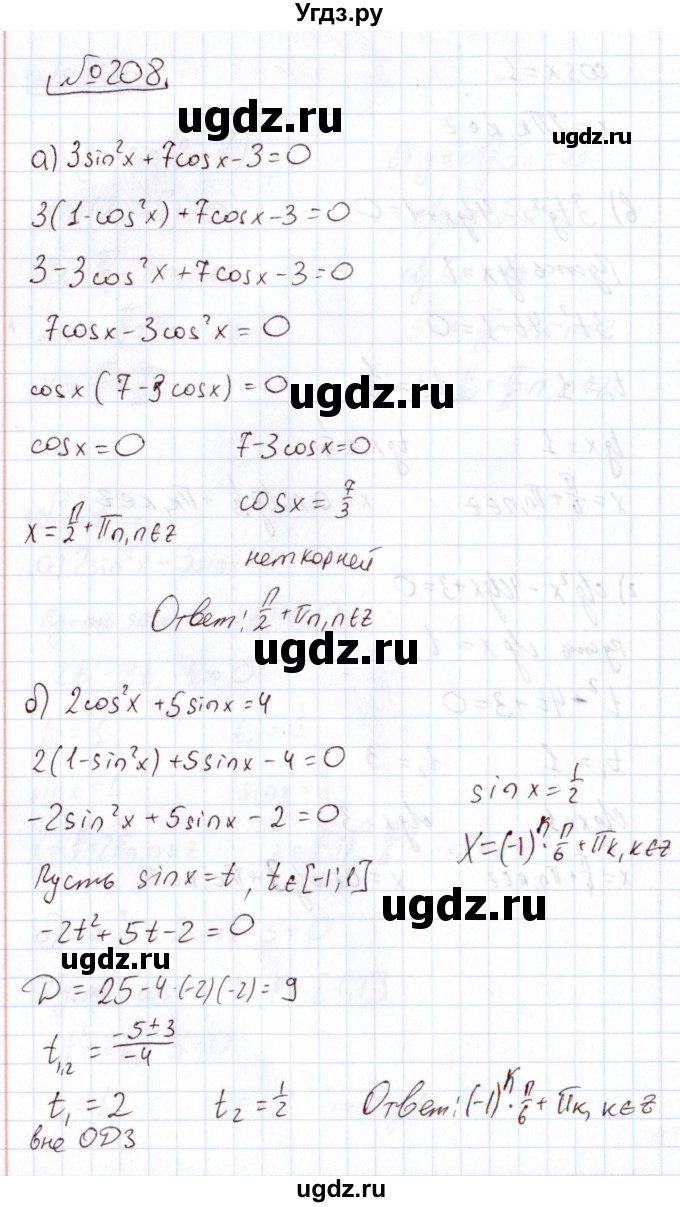 Угдз.ру
№208.
ugdz.ru
ugdz.ru
а) 3sin²x + 7cosx - 3 = 0
3(1 - cos²x) + 7cosx - 3 = 0
3 - 3cos²x + 7cosx - 3 = 0
7cosx - 3cos²x = 0
cosx (7 - 3cosx) = 0
ugdz.ru
cosx = 0    7 - 3cosx = 0
cosx = 7/3
x = π/2 + πn, n∈z
нет корней
Ответ: π/2 + πn, n∈z
ugdz.ru
б) 2cos²x + 5sinx = 4
2(1 - sin²x) + 5sinx - 4 = 0
sinx = 1/2
-2sin²x + 5sinx - 2 = 0
x = (-1)^k · π/6 + πk, k∈z
Пусть sinx = t, t∈[-1; 1]
ugdz.ru
-2t² + 5t - 2 = 0
ugdz.ru
D = 25 - 4·(-2)(-2) = 9
t1,2 = (-5±3)/-4
t₁ = 2    t₂ = 1/2    Ответ: (-1)^k · π/6 + πk, k∈z
вне ОДЗ
ugdz.ru
ugdz.ru